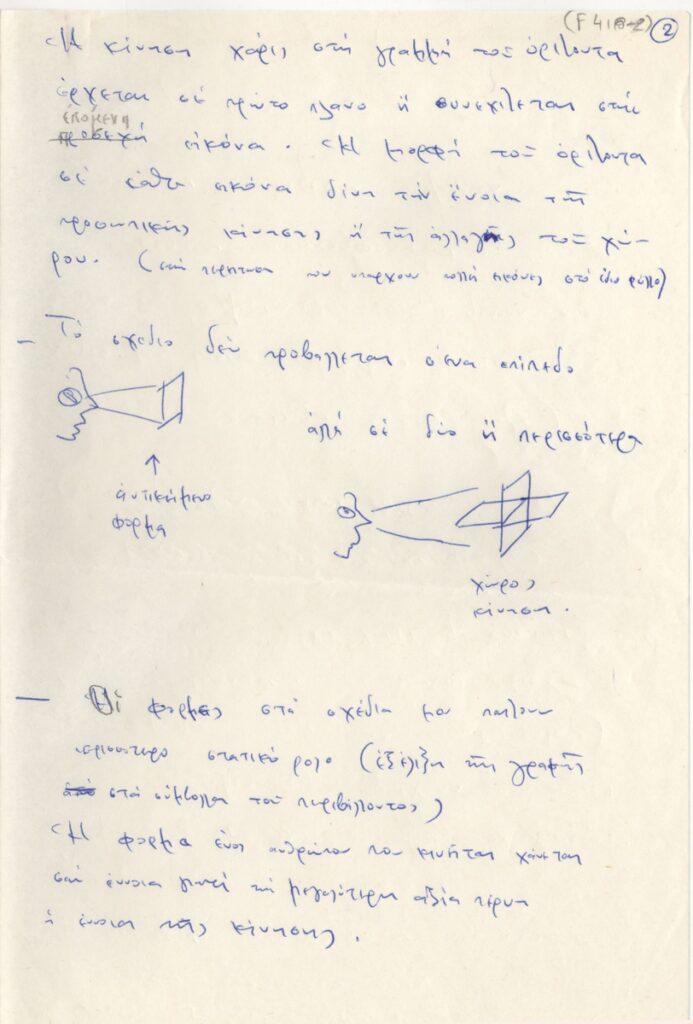 (F 418-2) 2
Ἡ κίνηση χάρις στή γραμμή τοῦ ὁρίζοντα
ἔρχεται σέ πρῶτο πλάνο ἤ συνεχίζεται στήν
ἑπόμενη
προσεχή εἰκόνα. Ἡ μορφή τοῦ ὁρίζοντα
σέ κάθε εικόνα δίνη τήν ἔννοια τῆς
προσωπικῆς κίνησης ἤ τῆς ἀλλαγῆς τοῦ χώ-
ρου. (στήν περίπτωση που υπαρχουν πολλές εικόνες στό ἴδιο φύλλο)
- Τό σχεδιο δέν προβαλλεται σ'ενα επίπεδο
ἀλλά σέ δύο ἤ περισσότερα
↑
ἀντικείμενο
φορμα
χῶρος
κίνηση.
— Οἱ φορμες στά σχέδια μου παίζουν
περισσοτερο στατικό ρολο (ἐξέλιξη τῆς γραφῆς
ἀπό στά σύμβολλα τοῦ περιβάλλοντος)
Ἡ φορμα ἑνός ανθρώπου που κινῆται χάνεται
σάν έννοια γιατί τή μεγαλύτερη αξία πέρνη
ἡ έννοια τῆς κίνησης.